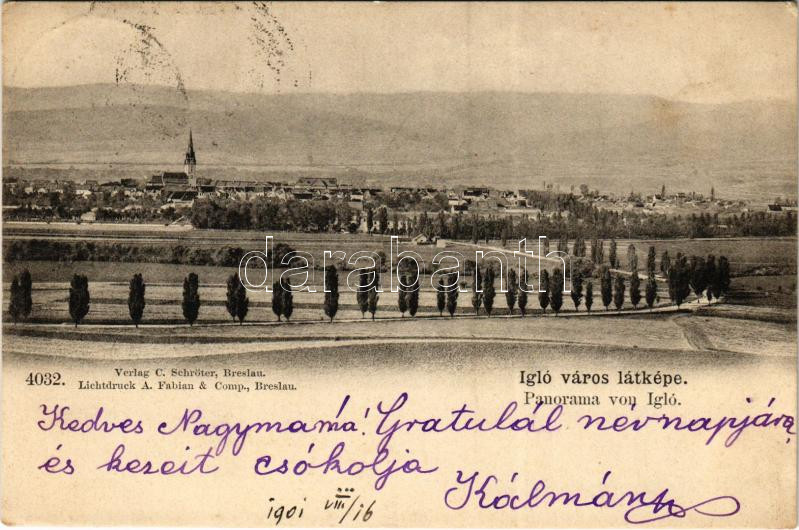 darabanth
4032.
Verlag C. Schröter, Breslau.
Lichtdruck A. Fabian & Comp., Breslau.
Igló város látképe.
Panorama von Igló.
Kedves Nagymama! Gratulál névnapjára
és kezeit csókolja
Kálmán
1901 VIII/16